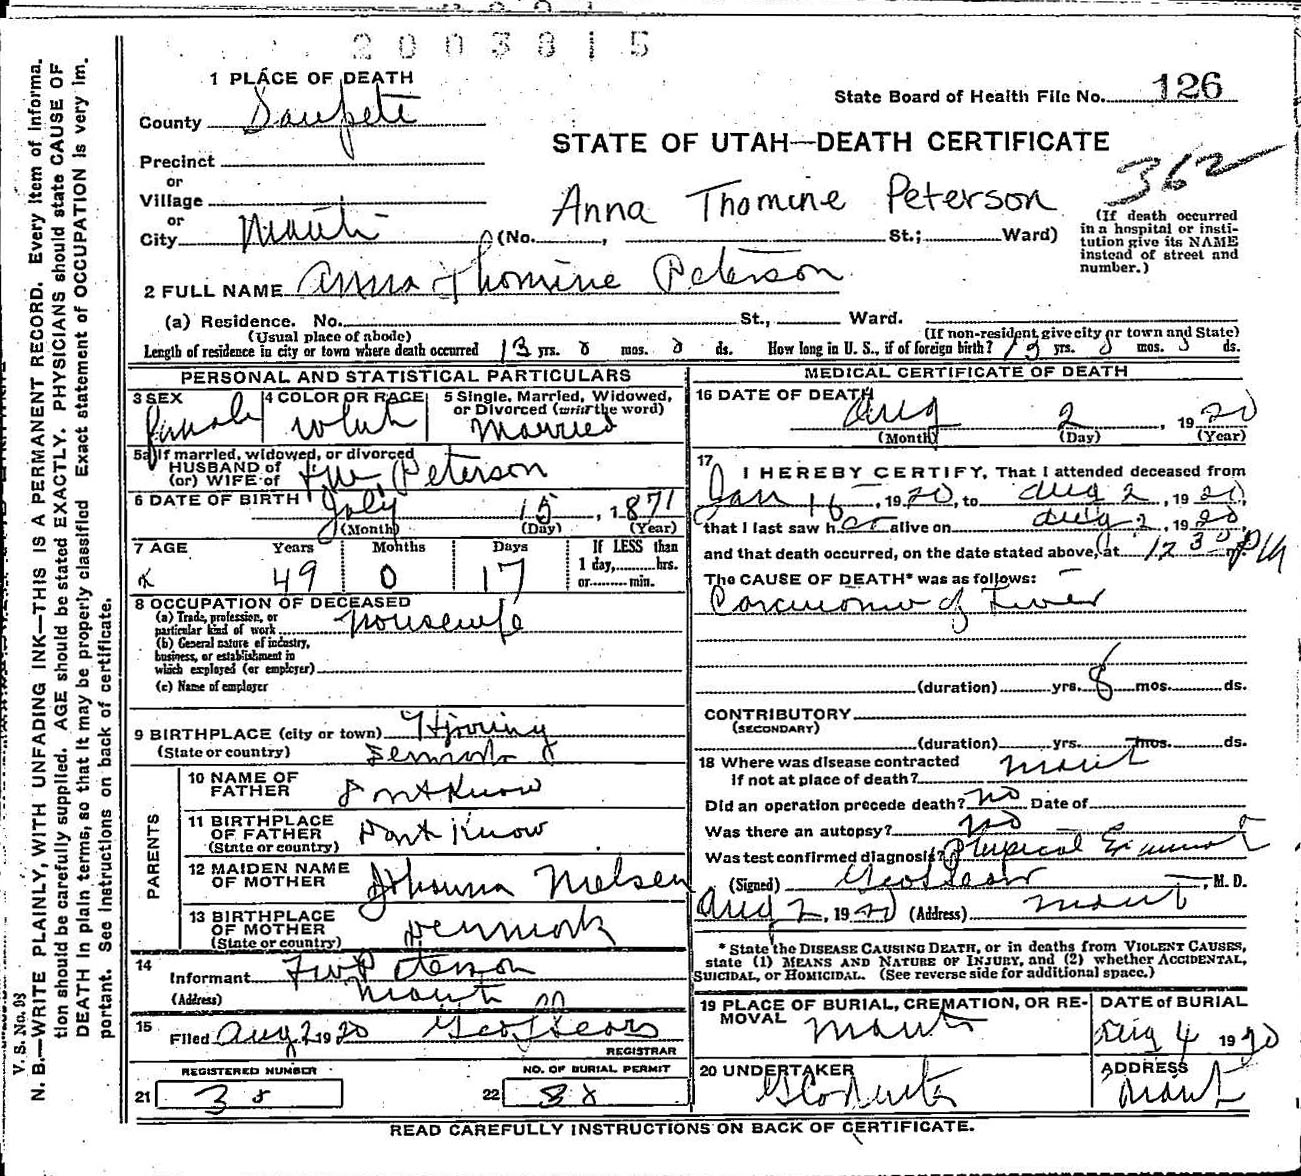 2003815
1 PLACE OF DEATH
State Board of Health File No. 126
County Sanpete
STATE OF UTAH—DEATH CERTIFICATE
362
Precinct
or
Village
or
City Manti
Anna Thomine Peterson
(No. , St.; Ward)
(If death occurred in a hospital or insti-
tution give its NAME
instead of street and
number.)
2 FULL NAME Anna Thomine Peterson
(a) Residence. No. St., Ward.
(Usual place of abode)
(If non-resident, give city or town and State)
Length of residence in city or town where death occurred 13 yrs. 0 mos. 0 ds. How long in U. S., if of foreign birth? 13 yrs. mos. ds.
PERSONAL AND STATISTICAL PARTICULARS
3 SEX Female
4 COLOR OR RACE White
5 Single, Married, Widowed,
or Divorced (write the word)
Married
5a If married, widowed, or divorced
HUSBAND of
(or) WIFE of Peterson
6 DATE OF BIRTH July 15, 1871
(Month) (Day) (Year)
7 AGE Years Months Days If LESS than
1 day, hrs.
or min.
49 0 17
8 OCCUPATION OF DECEASED
(a) Trade, profession, or
particular kind of work Housewife
(b) General nature of industry,
business, or establishment in
which employed (or employer)
(c) Name of employer
9 BIRTHPLACE (city or town) Hjorring
(State or country) Denmark
PARENTS
10 NAME OF
FATHER Dont Know
11 BIRTHPLACE
OF FATHER Dont Know
(State or country)
12 MAIDEN NAME
OF MOTHER Johanna Nielsen
13 BIRTHPLACE
OF MOTHER Denmark
(State or country)
14
Informant Peterson
(Address) Manti
15
Filed Aug 2 1920 Geo L Sears
REGISTRAR
REGISTERED NUMBER
21 38
NO. OF BURIAL PERMIT
22 38
MEDICAL CERTIFICATE OF DEATH
16 DATE OF DEATH
Aug 2, 1920
(Month) (Day) (Year)
17
I HEREBY CERTIFY, That I attended deceased from
Jan 16, 1920, to Aug 2, 1920,
that I last saw her alive on Aug 2, 1920,
and that death occurred, on the date stated above, at 12 30 PM
The CAUSE OF DEATH* was as follows:
Carcinoma of Liver
(duration) yrs. 8 mos. ds.
CONTRIBUTORY
(SECONDARY)
(duration) yrs. mos. ds.
18 Where was disease contracted
if not at place of death? Manti
Did an operation precede death? No Date of
Was there an autopsy? No
Was test confirmed diagnosis? Physical
(Signed) Geo L Sears, M. D.
Aug 2, 1920 (Address) Manti
* State the DISEASE CAUSING DEATH, or in deaths from VIOLENT CAUSES,
state (1) MEANS AND NATURE OF INJURY, and (2) whether ACCIDENTAL,
SUICIDAL, or HOMICIDAL. (See reverse side for additional space.)
19 PLACE OF BURIAL, CREMATION, OR RE-
MOVAL Manti
DATE of BURIAL
Aug 4 1920
20 UNDERTAKER
ADDRESS
Manti
READ CAREFULLY INSTRUCTIONS ON BACK OF CERTIFICATE.
V. S. No. 98
N. B.—WRITE PLAINLY, WITH UNFADING INK—THIS IS A PERMANENT RECORD. Every item of informa-
tion should be carefully supplied. AGE should be stated EXACTLY. PHYSICIANS should state CAUSE OF
DEATH in plain terms, so that it may be properly classified. Exact statement of OCCUPATION is very im-
portant. See instructions on back of certificate.